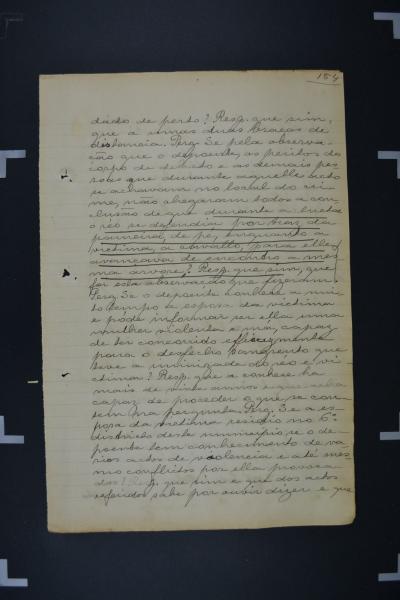 154
diado de perto? Resp. que sim,
que a umas duas braças de
distancia. Perg. Se pela observa-
ção que o depoente, os peritos do
corpo de delicto e as demais pes-
soas que durante aquelle acto
se achavam no local do cri-
me, não chegaram todos a con-
clusão de que durante a lucta
o réo se defendia por traz da
paineira, de pé, emquanto a
victima, a cavallo, para elle
avançava de encontro a mes-
ma arvore? Resp. que sim, que
foi esta observação que fizeram.
Perg. Se o depoente conhece a mui-
to tempo a esposa da victima
e pode informar ser ella uma
mulher violenta e má, capaz
de ter concorrido efficazmente
para o desfecho sangrento que
teve a inimizade do réo e vi-
ctima? Resp. que a conhece ha
mais de vinte annos e que acha
capaz de proceder o que se con-
tem na pergunta. Perg. Se a es-
posa da victima residio no 6º
districto deste municipio e o de-
poente tem conhecimento de va-
rios actos de violencia e até mes-
mo conflictos por ella provoca-
dos? Resp. que sim e que dos actos
referidos sabe por ouvir dizer e que